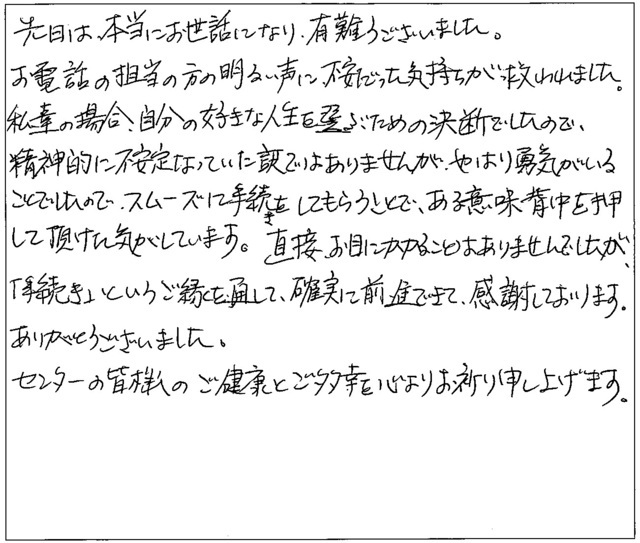 先日は、本当にお世話になり、有難うございました。
お電話の担当の方の明るい声に、不安だった気持ちが救われました。
私達の場合、自分の好きな人生を選ぶための決断でしたので、
精神的に不安定なっていた訳ではありませんが、やはり勇気がいる
ことでしたので、スムーズに手続きをしてもらうことで、ある意味背中を押
して頂けた気がしています。直接、お目にかかることはありませんでしたが、
「手続き」というご縁を通して、確実に前進できて、感謝しております。
ありがとうございました。
センターの皆様のご健康とご多幸を心よりお祈り申し上げます。